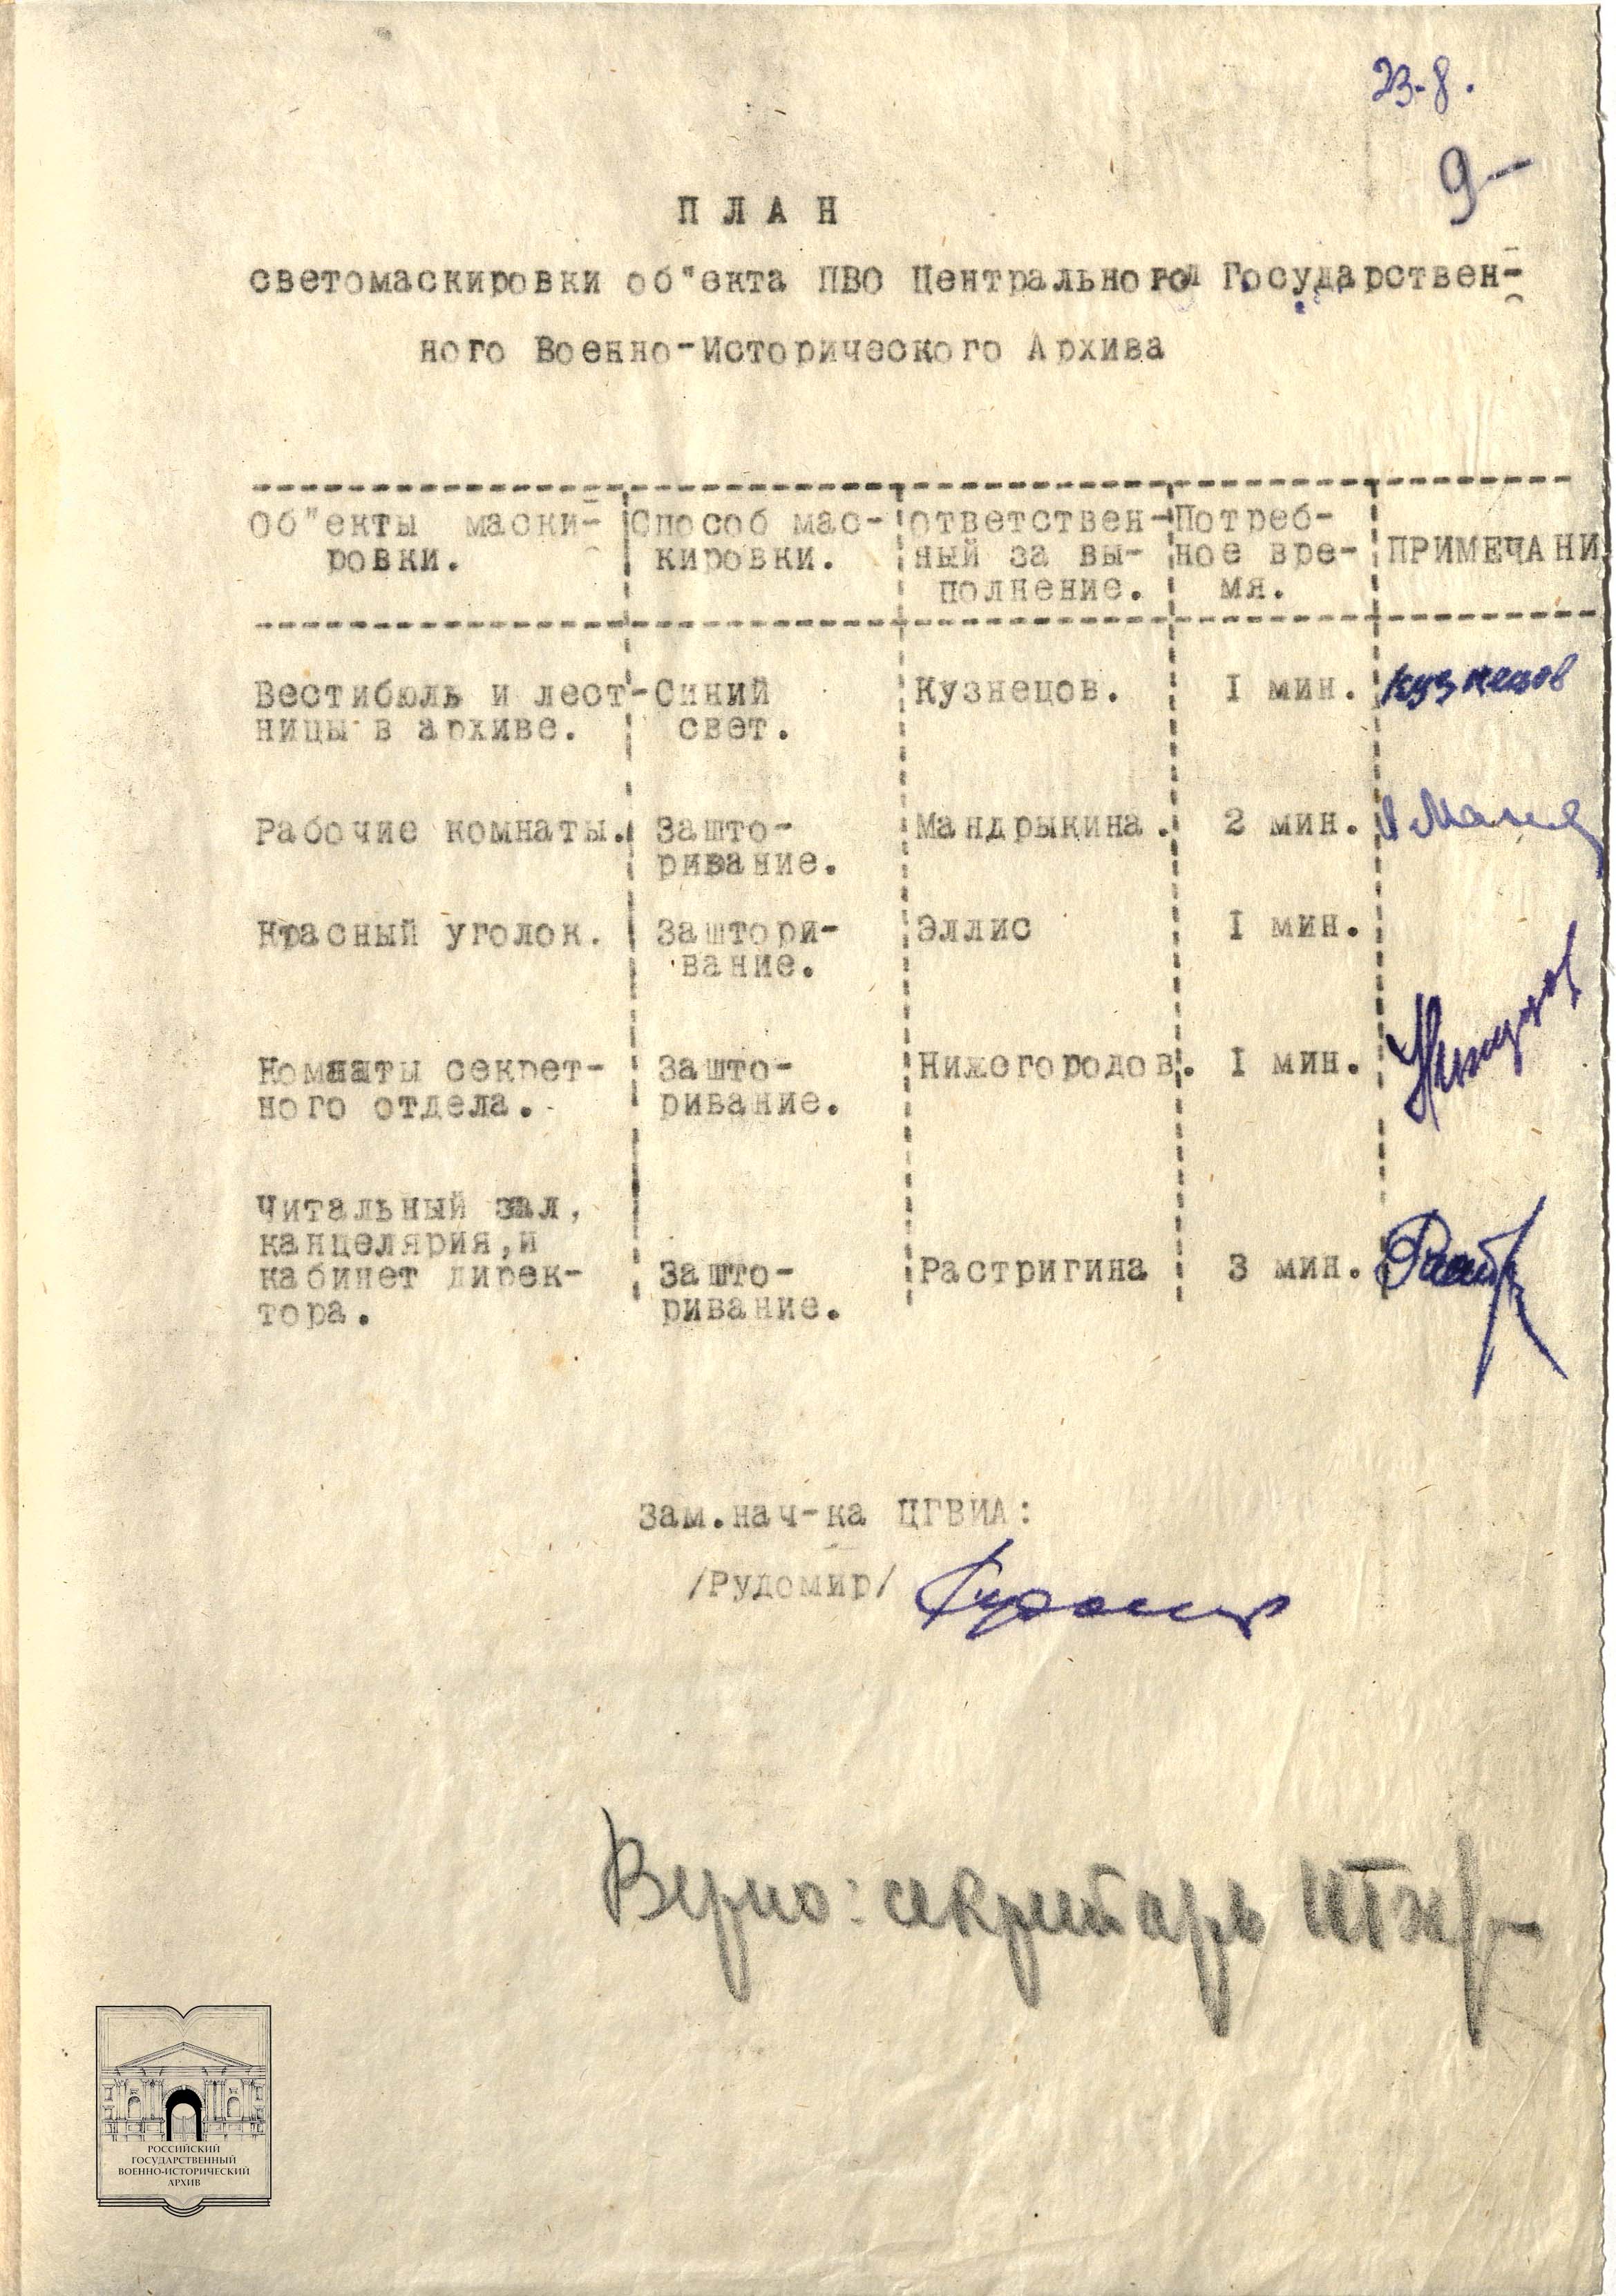 23-8.
9-
ПЛАН
светомаскировки об"екта ПВО Центрального Государствен-
ного Военно-Исторического Архива
Об"екты маски-
ровки.
Способ мас-
кировки.
ответствен-
ный за вы-
полнение.
Потреб-
ное вре-
мя.
ПРИМЕЧАНИ
Вестибюль и лест-
ницы в архиве.
Синий
свет.
Кузнецов.
I мин.
Кузнецов
Рабочие комнаты.
Зашто-
ривание.
Мандрыкина.
2 мин.
Красный уголок.
Заштори-
вание.
Эллис
I мин.
Комнаты секрет-
ного отдела.
Зашто-
ривание.
Нижегородов.
I мин.
Читальный зал,
канцелярия,и
кабинет дирек-
тора.
Зашто-
ривание.
Растригина
3 мин.
Зам.нач-ка ЦГВИА:
/Рудомир/
Верно: секретарь
РОССИЙСКИЙ
ГОСУДАРСТВЕННЫЙ
ВОЕННО-ИСТОРИЧЕСКИЙ
АРХИВ